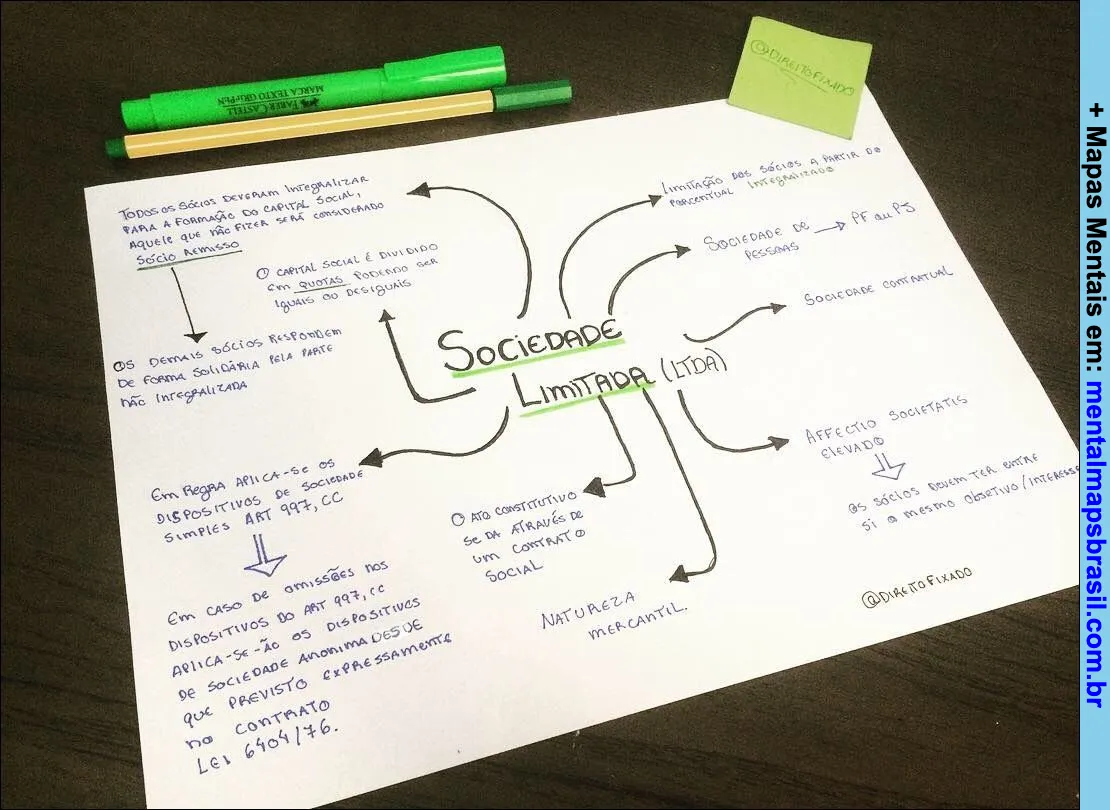 FABER-CASTELL
MARCA TEXTO GRIFPEN
@DIREITOFIXADO
TODOS OS SÓCIOS DEVERAM INTEGRALIZAR
PARA A FORMAÇÃO DO CAPITAL SOCIAL,
AQUELE QUE NÃO FIZER SERÁ CONSIDERADO
SÓCIO REMISSO
OS DEMAIS SÓCIOS RESPONDEM
DE FORMA SOLIDÁRIA PELA PARTE
NÃO INTEGRALIZADA
O CAPITAL SOCIAL É DIVIDIDO
EM QUOTAS PODENDO SER
IGUAIS OU DESIGUAIS
LIMITAÇÃO DOS SÓCIOS A PARTIR DO
PORCENTUAL INTEGRALIZADO
SOCIEDADE DE → PF OU PJ
PESSOAS
SOCIEDADE CONTRATUAL
SOCIEDADE
LIMITADA (LTDA)
AFFECTIO SOCIETATIS
ELEVADO
OS SÓCIOS DEVEM TER ENTRE
SI O MESMO OBJETIVO/INTERESSE
EM REGRA APLICA-SE OS
DISPOSITIVOS DE SOCIEDADE
SIMPLES ART 997, CC
EM CASO DE OMISSÕES NOS
DISPOSITIVOS DO ART 997, CC
APLICA-SE-ÃO OS DISPOSITIVOS
DE SOCIEDADE ANONIMA DESDE
QUE PREVISTO EXPRESSAMENTE
NO CONTRATO
LEI 6404/76.
O ATO CONSTITUTIVO
SE DA ATRAVÉS DE
UM CONTRATO
SOCIAL
NATUREZA
MERCANTIL.
@DIREITOFIXADO
+ Mapas Mentais em: mentalmapsbrasil.com.br